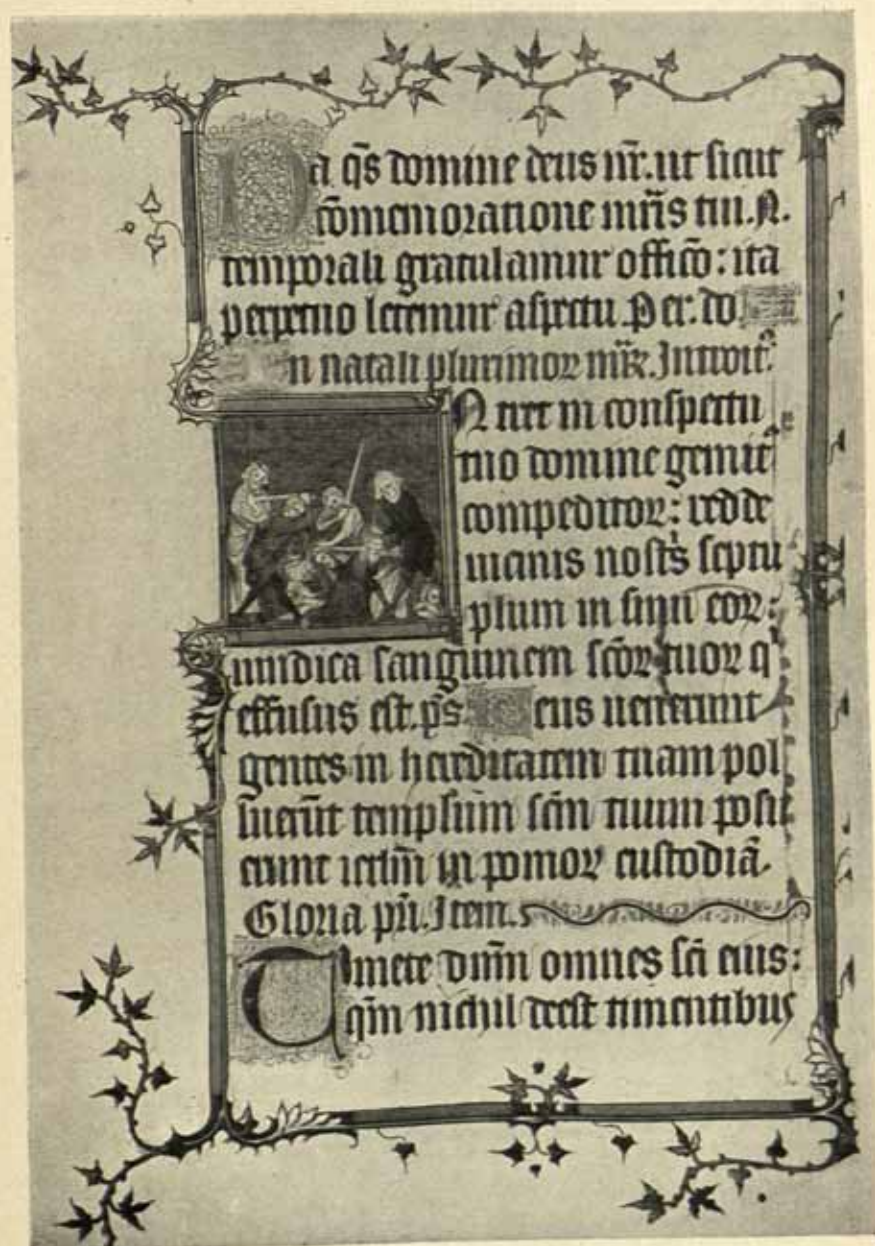 Da q̄s domine deus nr̄. ut sicut
cōmemoratione mr̄is tui .N.
temporali gratulamur officō: ita
perpetuo letemur aspectu. Per. do
In natali plurimoꝝ mr̄ꝝ. Introit᷒.
Ntret in conspectu
tuo domine gemit᷒
compeditoꝝ: redde
uicinis nostr̄s septu
plum in sinu eoꝝ:
uindica sanguinem sc̄oꝝ tuoꝝ q᷒
effusus est. p̄s. Deus uenerunt
gentes in hereditatem tuam pol
luerūt templum sc̄m tuum posu
erunt ierlm̄ in pomoꝝ custodiā.
Gloria pr̄i. Item.
Timete dn̄m omnes sc̄i eius:
qm̄ nichil deest timentibus